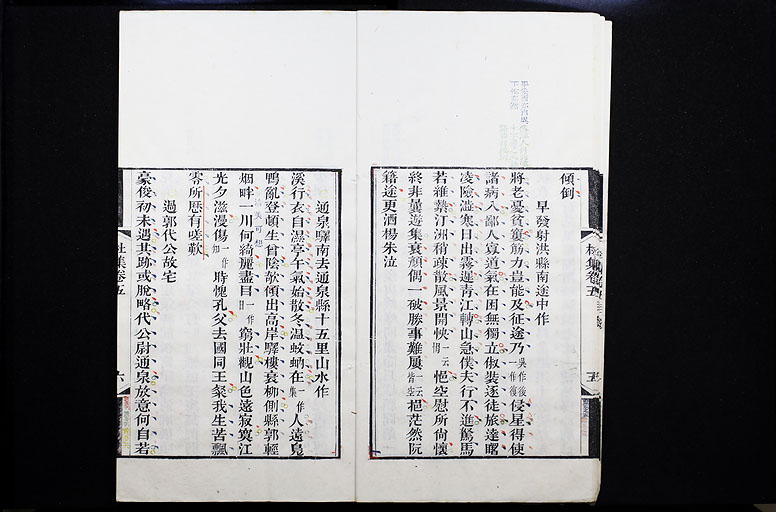 傾倒
早發射洪縣南途中作
將老憂貧窶筋力豈能及征途乃吳作後一作復侵星得使
諸病入鄙人寡道氣在困無獨立俶裝逐徒旅達曙
凌險澀寒日出霧遲清江轉山急僕夫行不進駑馬
若維縶汀洲稍疎散風景開怏悒空慰所尚懷
終非曩遊集衰顏偶一破勝事難屢挹茫然阮
籍途更灑楊朱泣
杜集卷五
五
通泉驛南去通泉縣十五里山水作
溪行衣自濕亭午氣始散冬温蚊蚋在一作集人遠鳧
鴨亂登頓生曾陰欹傾出高岸驛樓衰柳側縣郭輕
烟畔一川何綺麗盡目一作日窮壯觀山色遠寂寞江
光夕滋漫傷一作知時愧孔父去國同王粲我生苦飄
零所歷有嗟歎
過郭代公故宅
豪俊初未遇其跡或脫略代公尉通泉放意何自若
杜集卷五
六